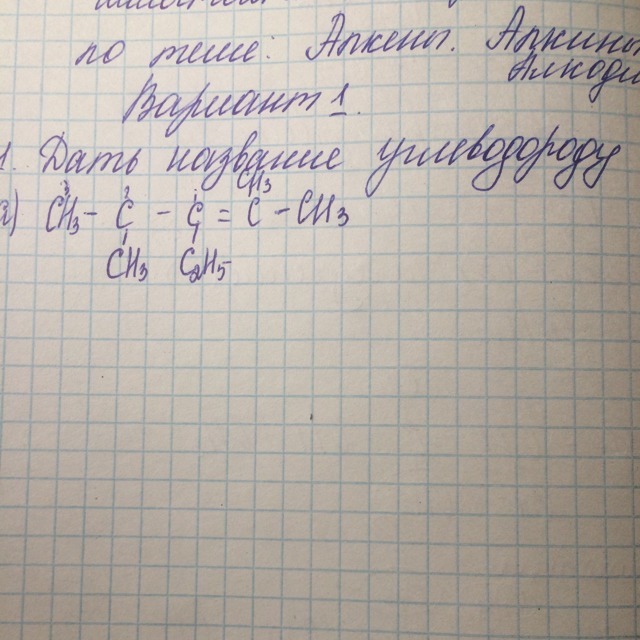 по теме: Алкены. Алкины
Алкоди
Вариант 1.
1. Дать название углеводороду
CH3
а) CH3 - C - C = C - CH3
CH3 C2H5